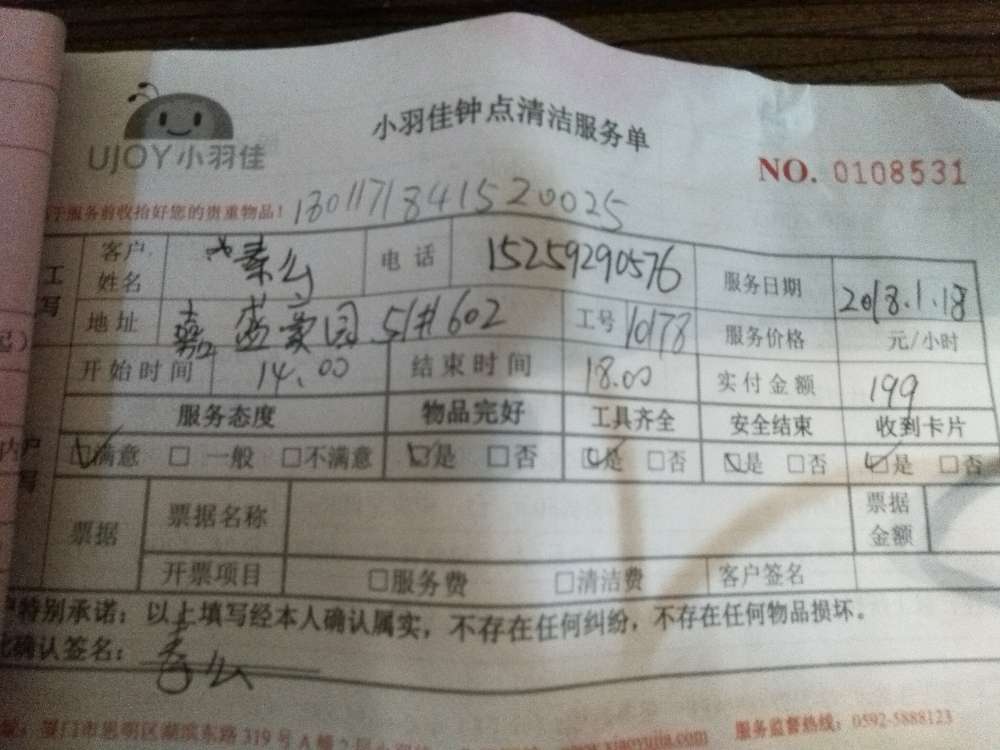 小羽佳钟点清洁服务单
UJOY小羽佳
NO. 0108531
于服务前收拾好您的贵重物品! 1301171841520025
客户姓名 电话 15259290576 服务日期 2018.1.18
地址 51#602 工号 10178 服务价格 元/小时
开始时间 14.00 结束时间 18.00 实付金额 199
服务态度 物品完好 工具齐全 安全结束 收到卡片
☑满意 □一般 □不满意 ☑是 □否 ☑是 □否 ☑是 □否 ☑是 □否
票据 票据名称 票据金额
开票项目 □服务费 □清洁费 客户签名
特别承诺:以上填写经本人确认属实,不存在任何纠纷,不存在任何物品损坏。
确认签名:
厦门市思明区湖滨东路319号A幢2层 www.xiaoyujia.com 服务监督热线:0592-5888123